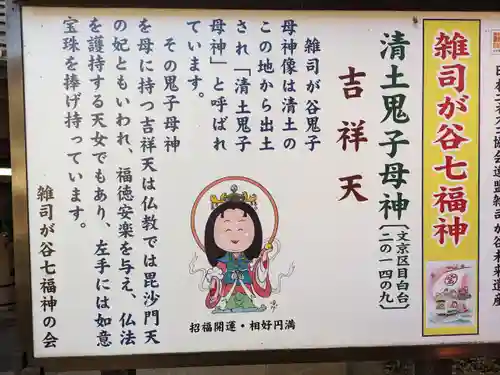 雑司が谷七福神
清土鬼子母神
(文京区目白台)
(二の一四の九)
吉祥天
雑司が谷鬼子
母神像は清土の
この地から出土
され「清土鬼子
母神」と呼ばれ
ています。
その鬼子母神
を母に持つ吉祥天は仏教では毘沙門天
の妃ともいわれ、福徳安楽を与え、仏法
を護持する天女でもあり、左手には如意
宝珠を捧げ持っています。
雑司が谷七福神の会
招福開運・相好円満